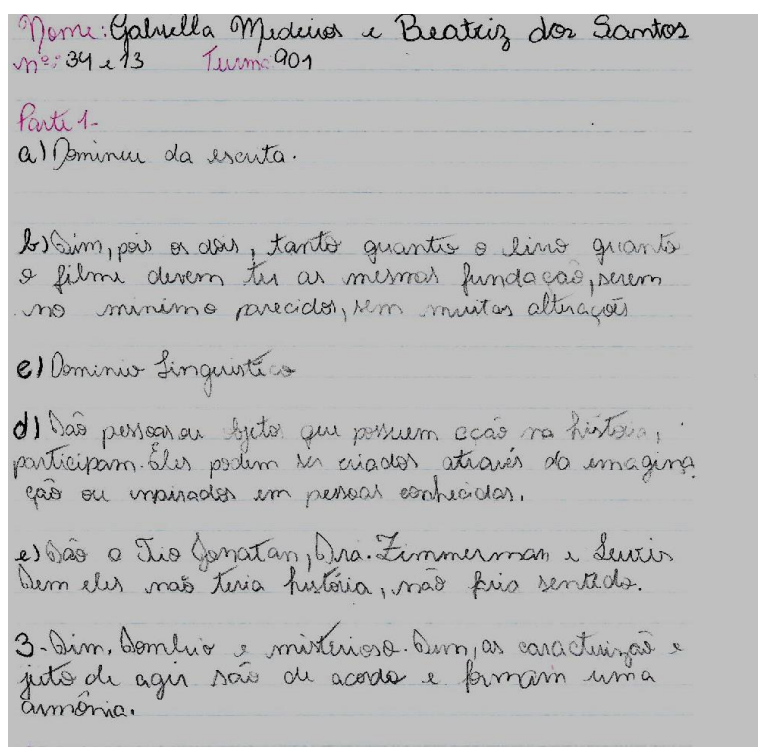 Nome: Gabriella Medeiros e Beatriz dos Santos
nº: 34 e 13 Turma: 901
Parte 1-
a) Domineu da escuta.
b) Sim, pois os dois, tanto quantio o livro quanto
o filme devem ter as mesmas fundação, serem
no minimo parecidos, sem muitas alterações
e) Dominio Linguistico
d) São pessoas ou objetos que possuem ação na história,
participam. Eles podem ser criados através da imagina
ção ou inspirados em pessoas conhecidas.
e) São o Tio Jonatan, Sra. Zimmerman e Lewis
Sem eles naõ teria história, não faria sentido.
3- Sim. Sombrio e misterioso. Sim, as caracterização e
jeito de agir são de acordo e formam uma
armônia.